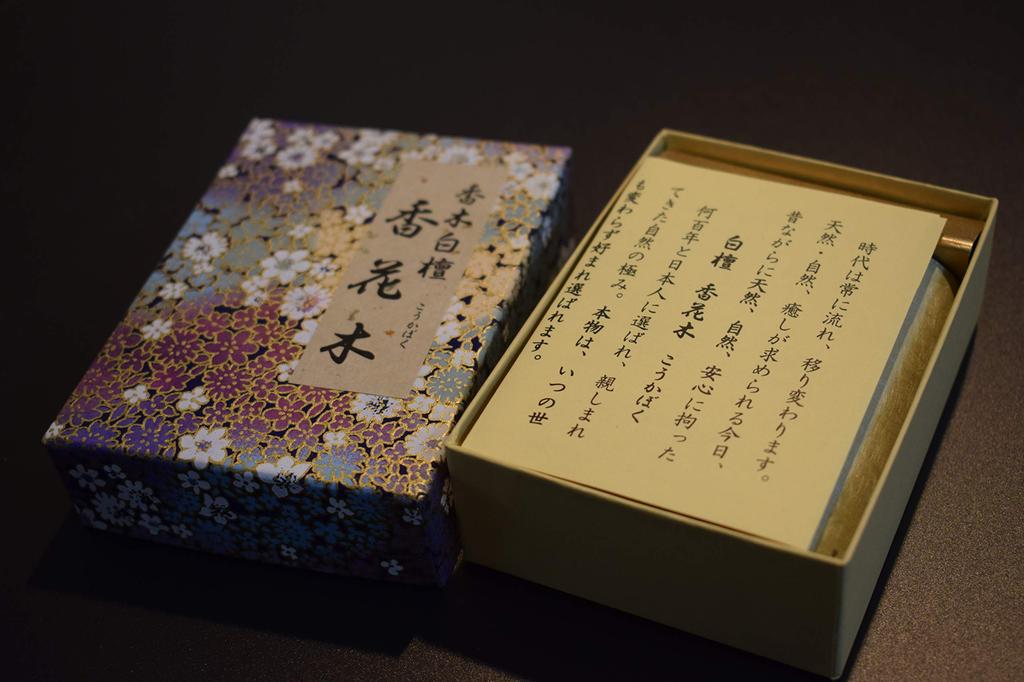 香木白檀
香花木
こうかぼく
時代は常に流れ、移り変わります。
天然・自然、癒しが求められる今日、
昔ながらに天然、自然、安心に拘った
白檀 香花木 こうかぼく
何百年と日本人に選ばれ、親しまれ
てきた自然の極み。本物は、いつの世
も変わらず好まれ選ばれます。